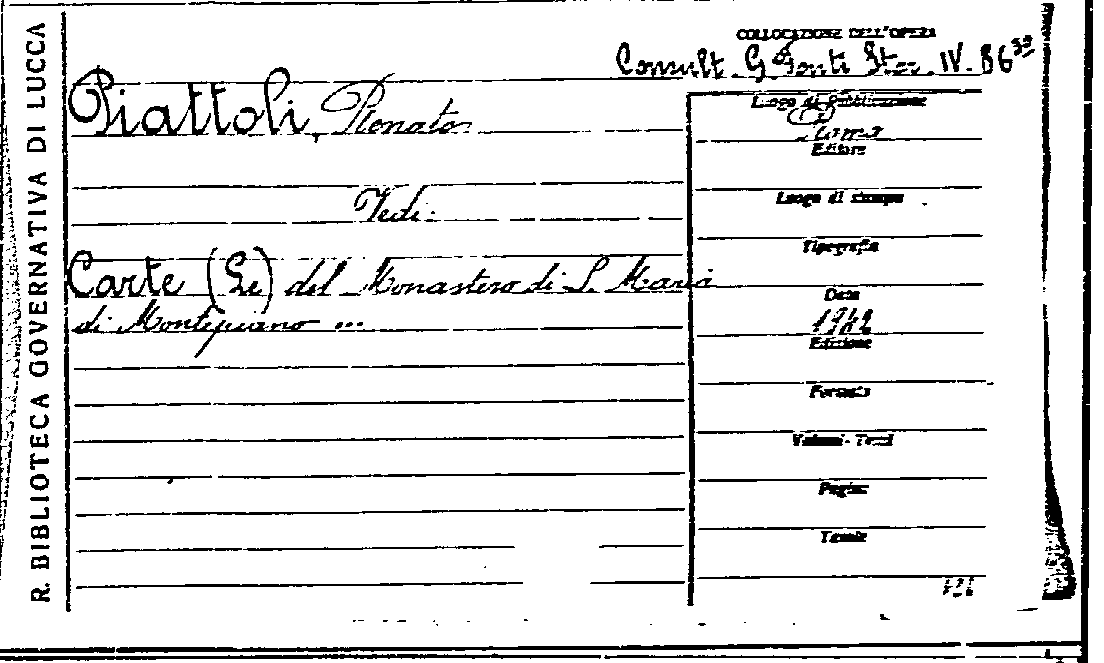 R. BIBLIOTECA GOVERNATIVA DI LUCCA
COLLOCAZIONE DELL'OPERA
Consult. G Fonti Stor. IV. 86
Piattoli, Renato
Vedi:
Carte (Le) del Monastero di S. Maria
di Montepiano ...
Luogo di Pubblicazione
Roma
Editore
Luogo di stampa
Tipografia
Data
1942
Edizione
Formato
Volumi - Tomi
Pagine
Tavole